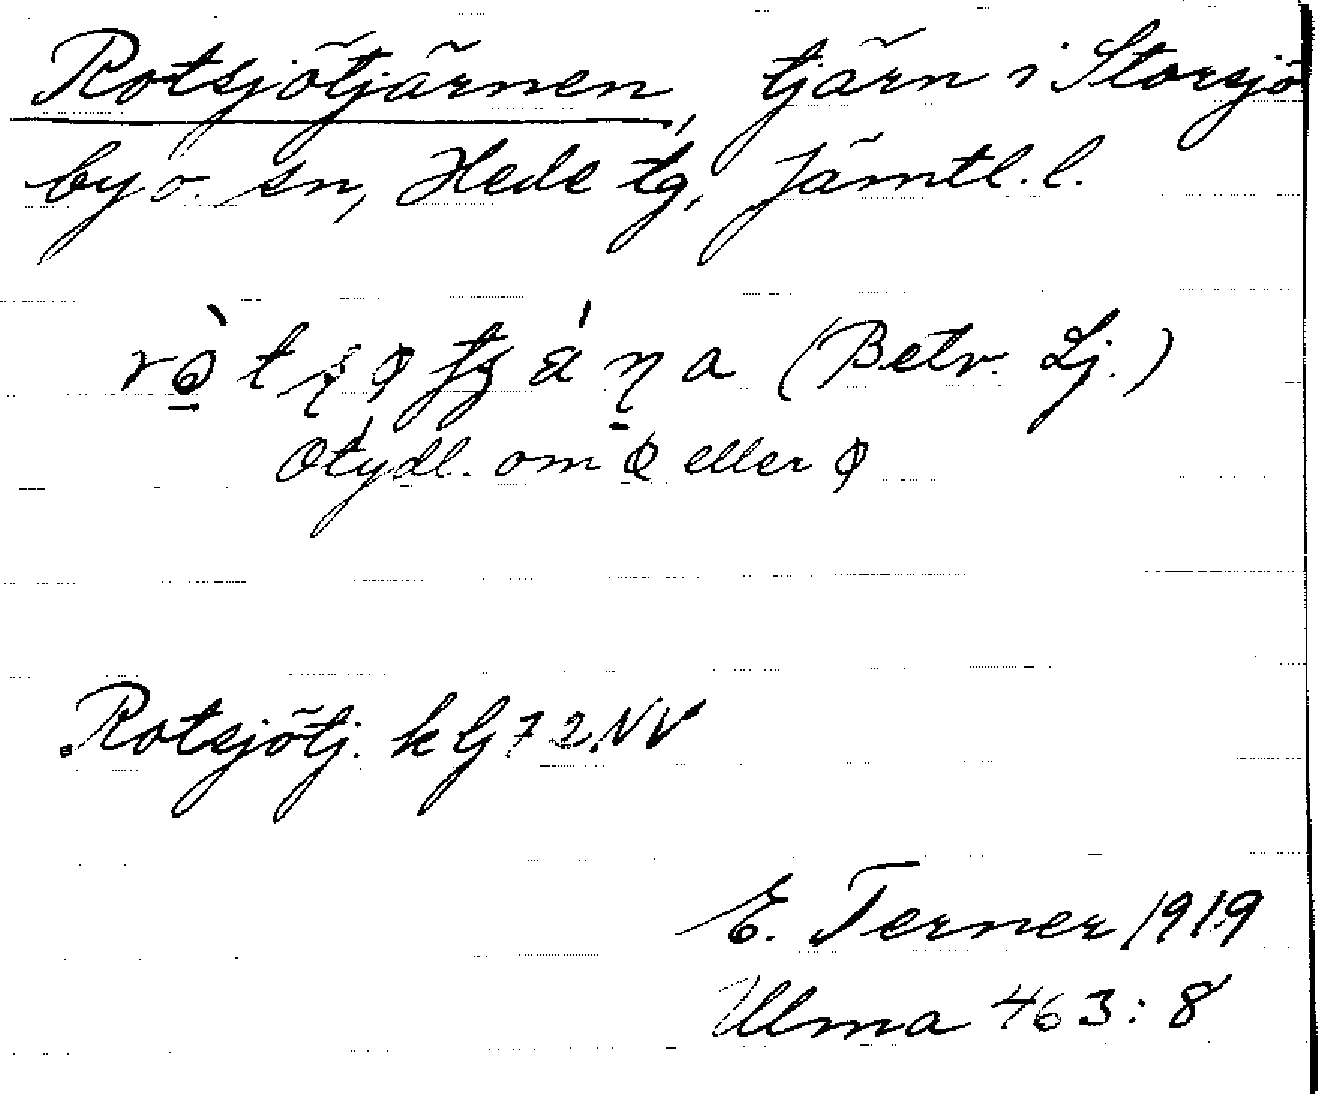 Rotsjötjärnen, tjärn i Storsjö
by o. sn, Hede tg, Jämtl. l.
(Betr. Lj.)
Otydl. om ꬾ eller φ
Rotsjötj. k Lj 72 NV
E. Terner 1919
Ulma 463:8